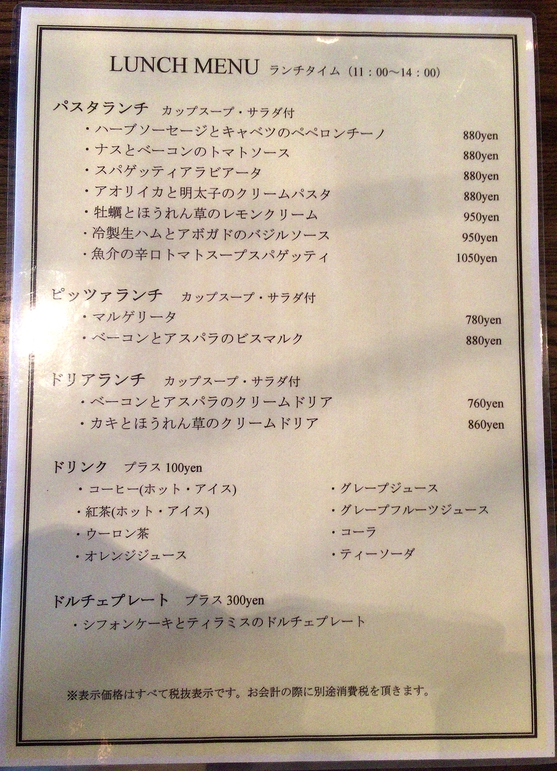 LUNCH MENU ランチタイム（11：00〜14：00）
パスタランチ カップスープ・サラダ付
・ハーブソーセージとキャベツのペペロンチーノ 880yen
・ナスとベーコンのトマトソース 880yen
・スパゲッティアラビアータ 880yen
・アオリイカと明太子のクリームパスタ 880yen
・牡蠣とほうれん草のレモンクリーム 950yen
・冷製生ハムとアボガドのバジルソース 950yen
・魚介の辛口トマトスープスパゲッティ 1050yen
ピッツァランチ カップスープ・サラダ付
・マルゲリータ 780yen
・ベーコンとアスパラのビスマルク 880yen
ドリアランチ カップスープ・サラダ付
・ベーコンとアスパラのクリームドリア 760yen
・カキとほうれん草のクリームドリア 860yen
ドリンク プラス 100yen
・コーヒー(ホット・アイス) ・グレープジュース
・紅茶(ホット・アイス) ・グレープフルーツジュース
・ウーロン茶 ・コーラ
・オレンジジュース ・ティーソーダ
ドルチェプレート プラス 300yen
・シフォンケーキとティラミスのドルチェプレート
※表示価格はすべて税抜表示です。お会計の際に別途消費税を頂きます。